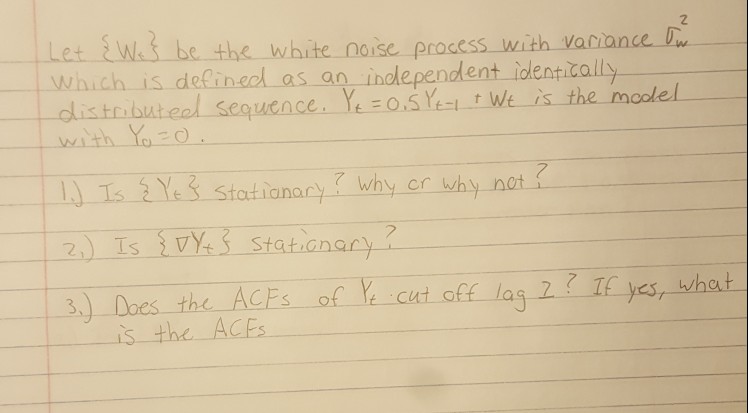 Let {Wt} be the white noise process with variance σ²w
which is defined as an independent identically
distributed sequence. Yt = 0.5Yt-1 + Wt is the model
with Y0 = 0.
1.) Is {Yt} stationary? Why or why not?
2.) Is {∇Yt} stationary?
3.) Does the ACFs of Yt cut off lag 2? If yes, what
is the ACFs